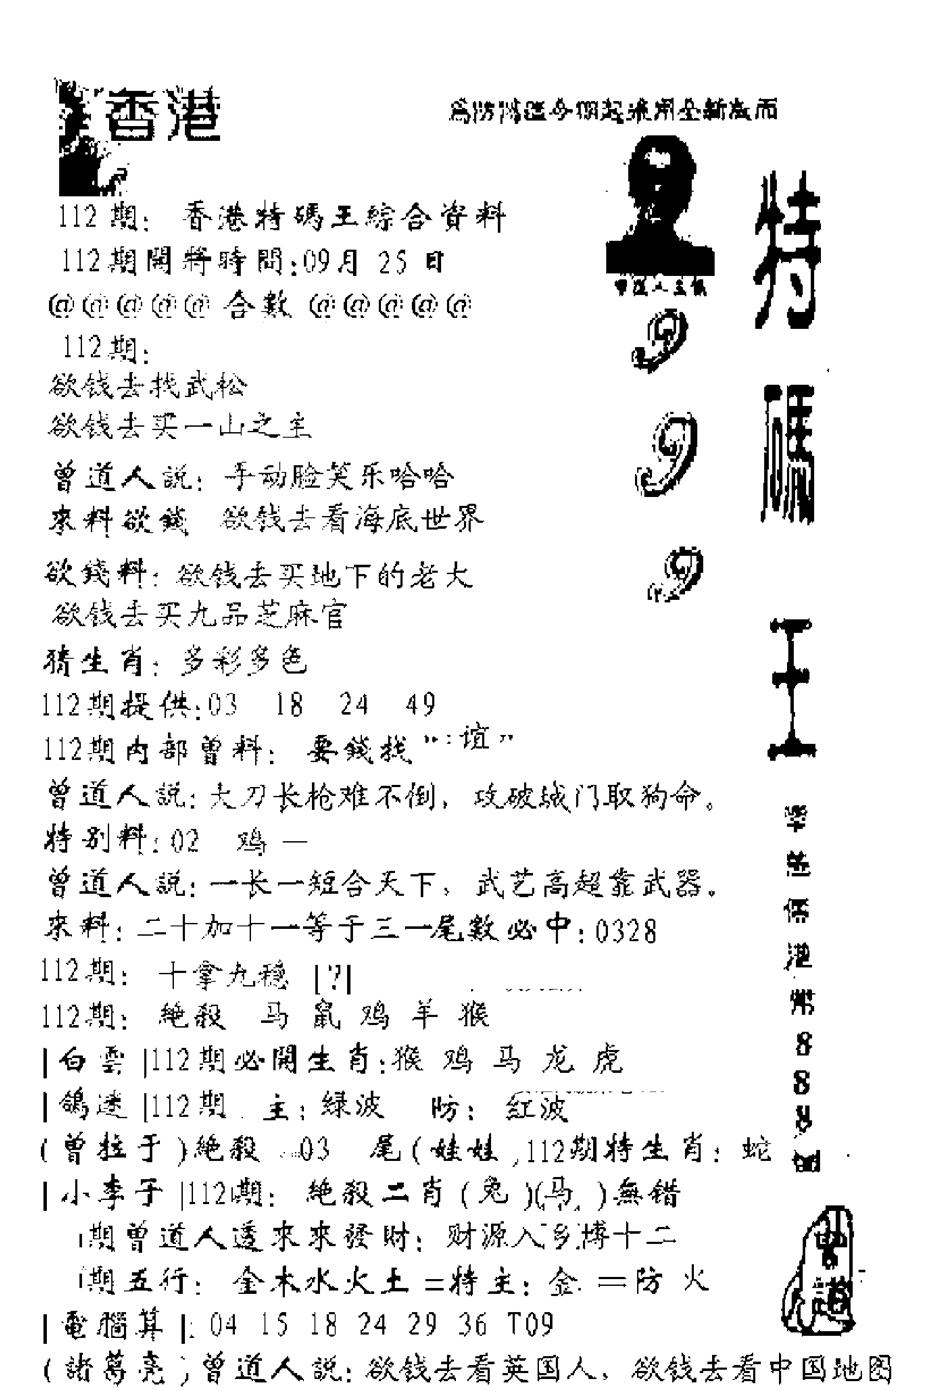 香港
為防
特碼王
999
曾道人
112期: 香港特碼王綜合資料
112期開將時間:09月 25日
@@@@@ 合數 @@@@@
112期:
欲钱去找武松
欲钱去买一山之主
曾道人説: 手动脸笑乐哈哈
來料欲錢 欲钱去看海底世界
欲錢料: 欲钱去买地下的老大
欲钱去买九品芝麻官
猜生肖: 多彩多色
112期提供:03 18 24 49
112期内部曾料: 要錢找 “:谊”
曾道人説:大刀长枪难不倒, 攻破城门取狗命。
特别料:02 鸡 —
曾道人説:一长一短合天下, 武艺高超靠武器。
來料:二十加十一等于三一尾數必中:0328
112期: 十拿九穩 |?|
112期: 絶殺 马 鼠 鸡 羊 猴
|白雲|112期必開生肖:猴 鸡 马 龙 虎
112期. 主:绿波 防: 红波
(曾拄于)絶殺 03 尾(娃娃,112期特生肖: 蛇
|小李子|112期: 絶殺二肖(兔)(马)無错
期曾道人透來來發財: 财源入乡博十二
期五行: 金木水火土=特主:金. =防 火
|電腦算|:04 15 18 24 29 36 T09
(諸葛亮)曾道人説:欲钱去看英国人, 欲钱去看中国地图
港幣888
曾道